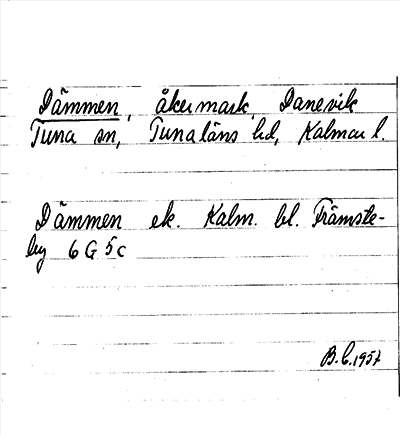 Dämmen, åkermark, Danevik
Tuna sn, Tunaläns hd, Kalmar l.
Dämmen ek. Kalm. bl. Främste-
by 6 G 5 c
B.C. 1957